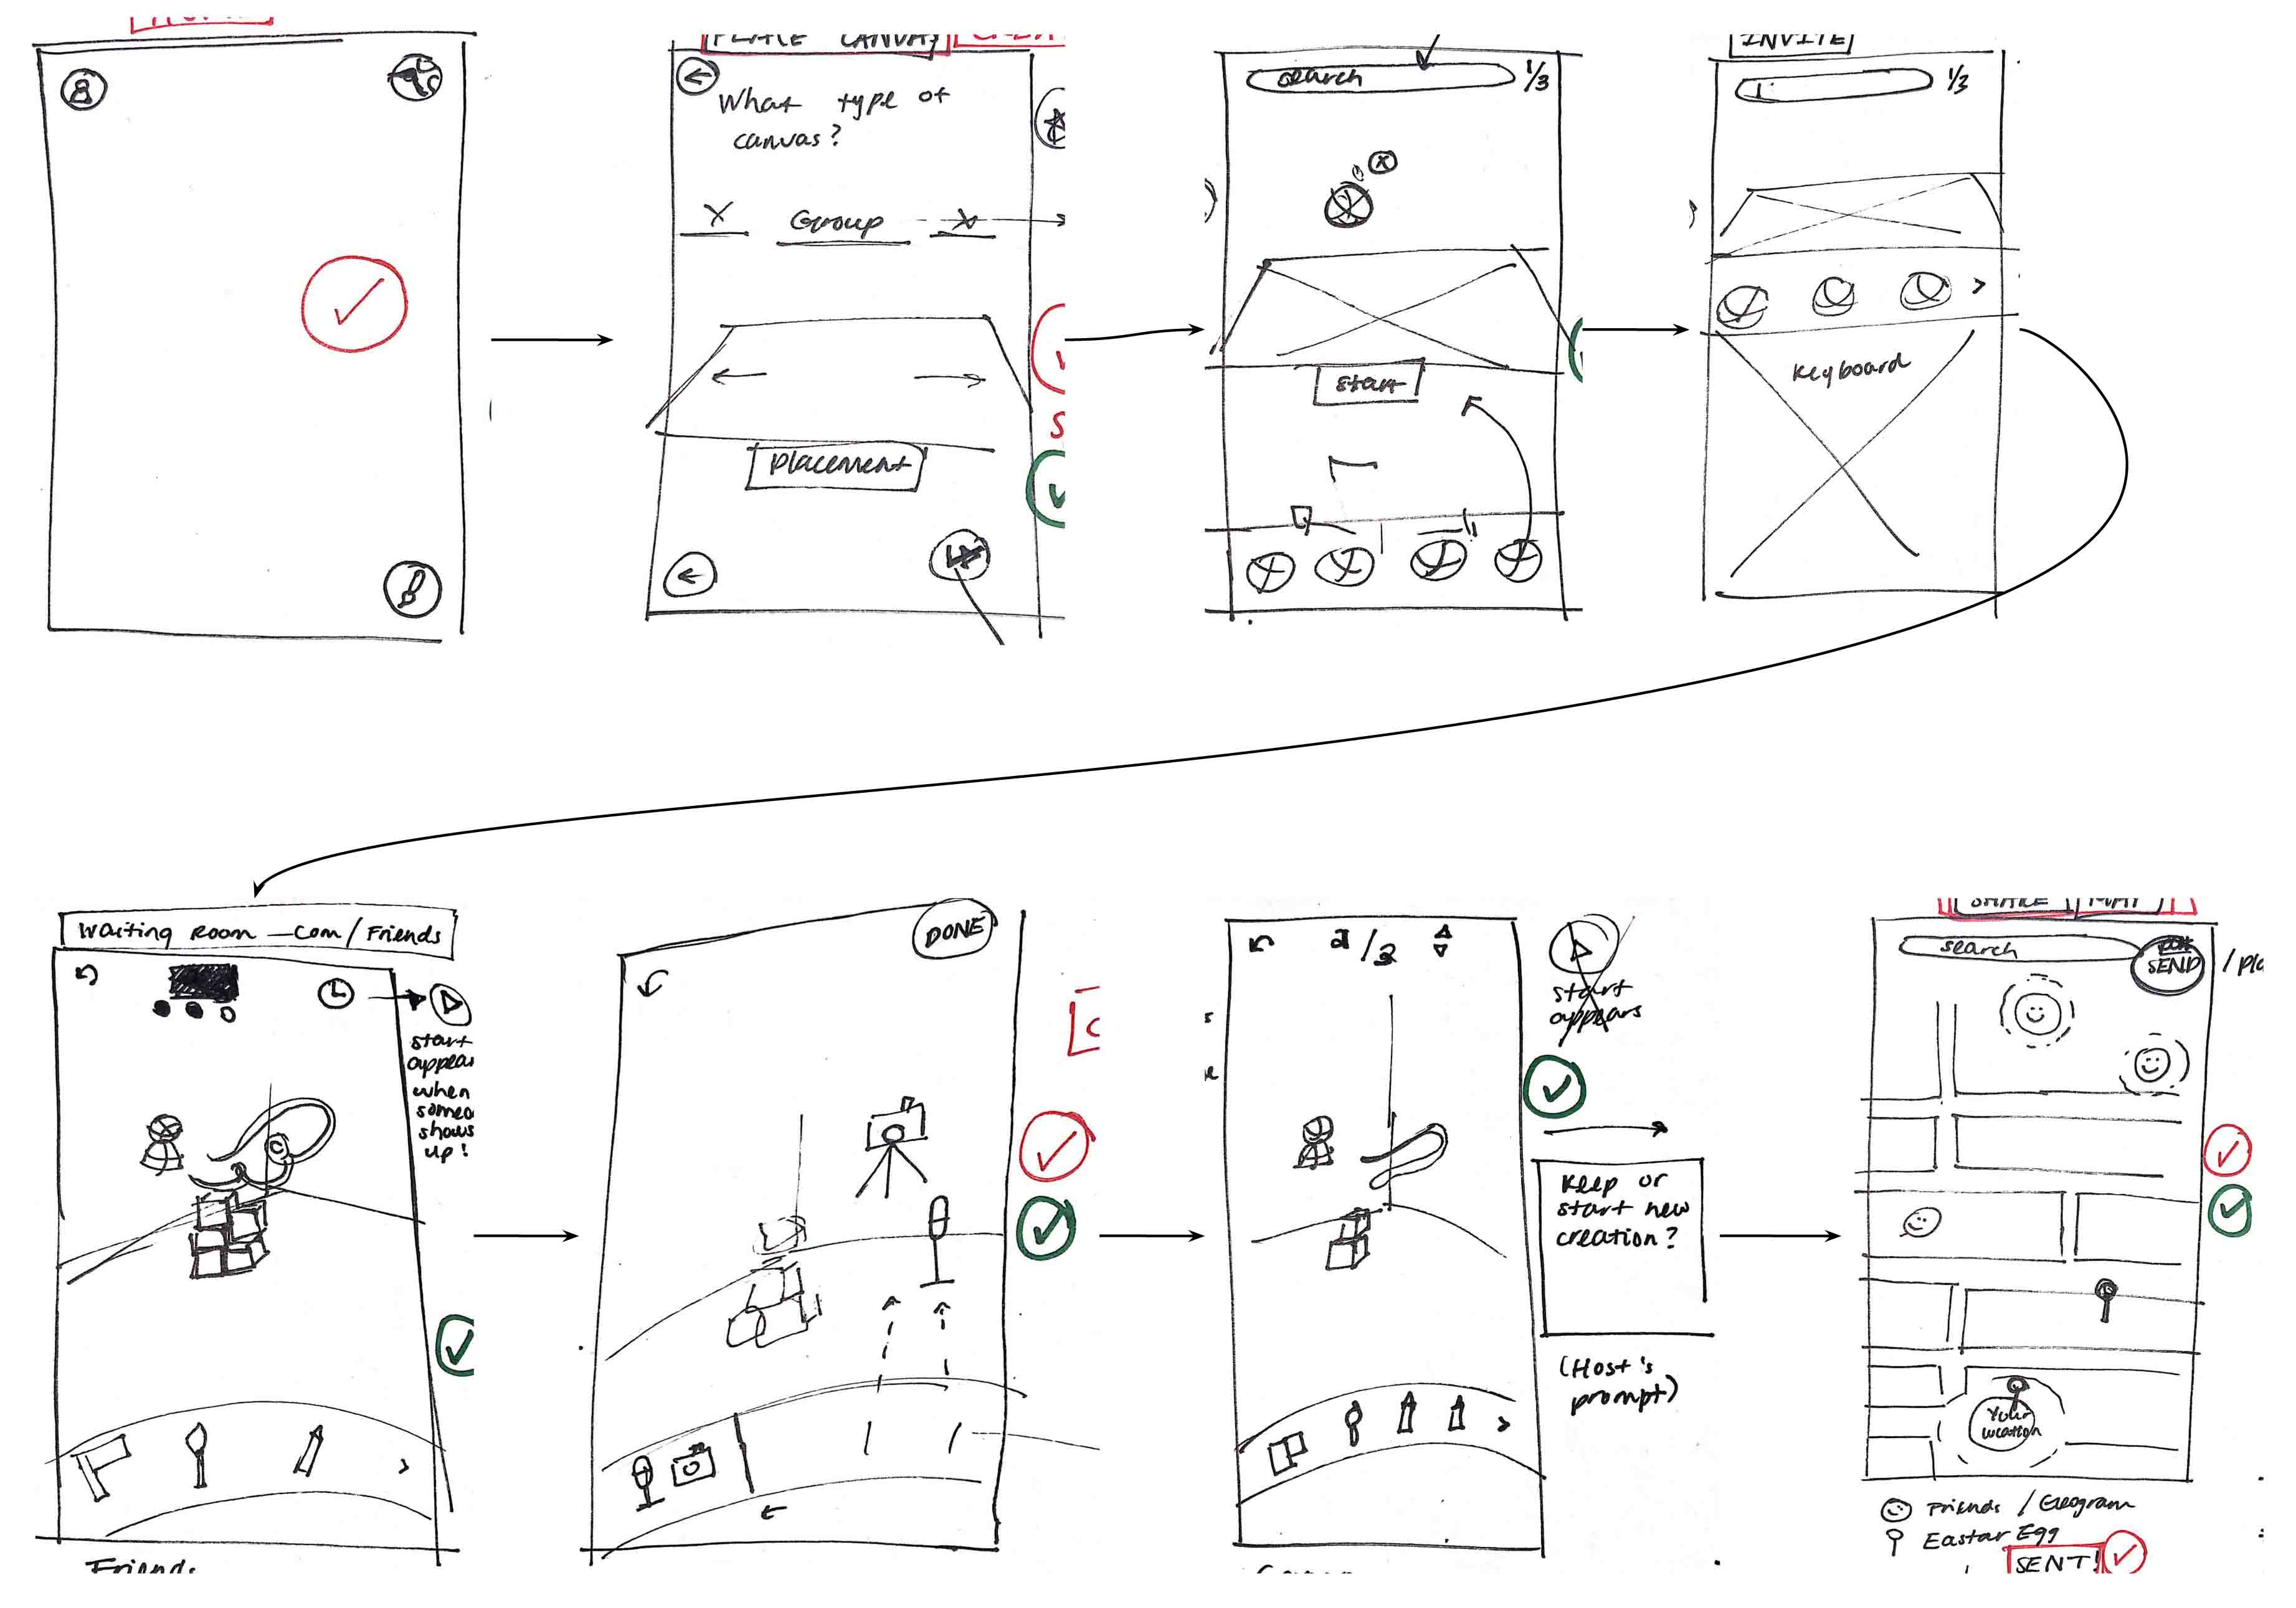 PLACE CANVAS
What type of
canvas?
Group
Placement
search
1/3
start
INVITE
1/3
Keyboard
Waiting Room - Com / Friends
start
appear
when
shows
up!
Friends
DONE
2/3
start
appears
Keep or
start new
creation?
(Host's
prompt)
SHARE MAP
search
SEND
Your
location
Friends / Geogram
Eastar Egg
SENT!